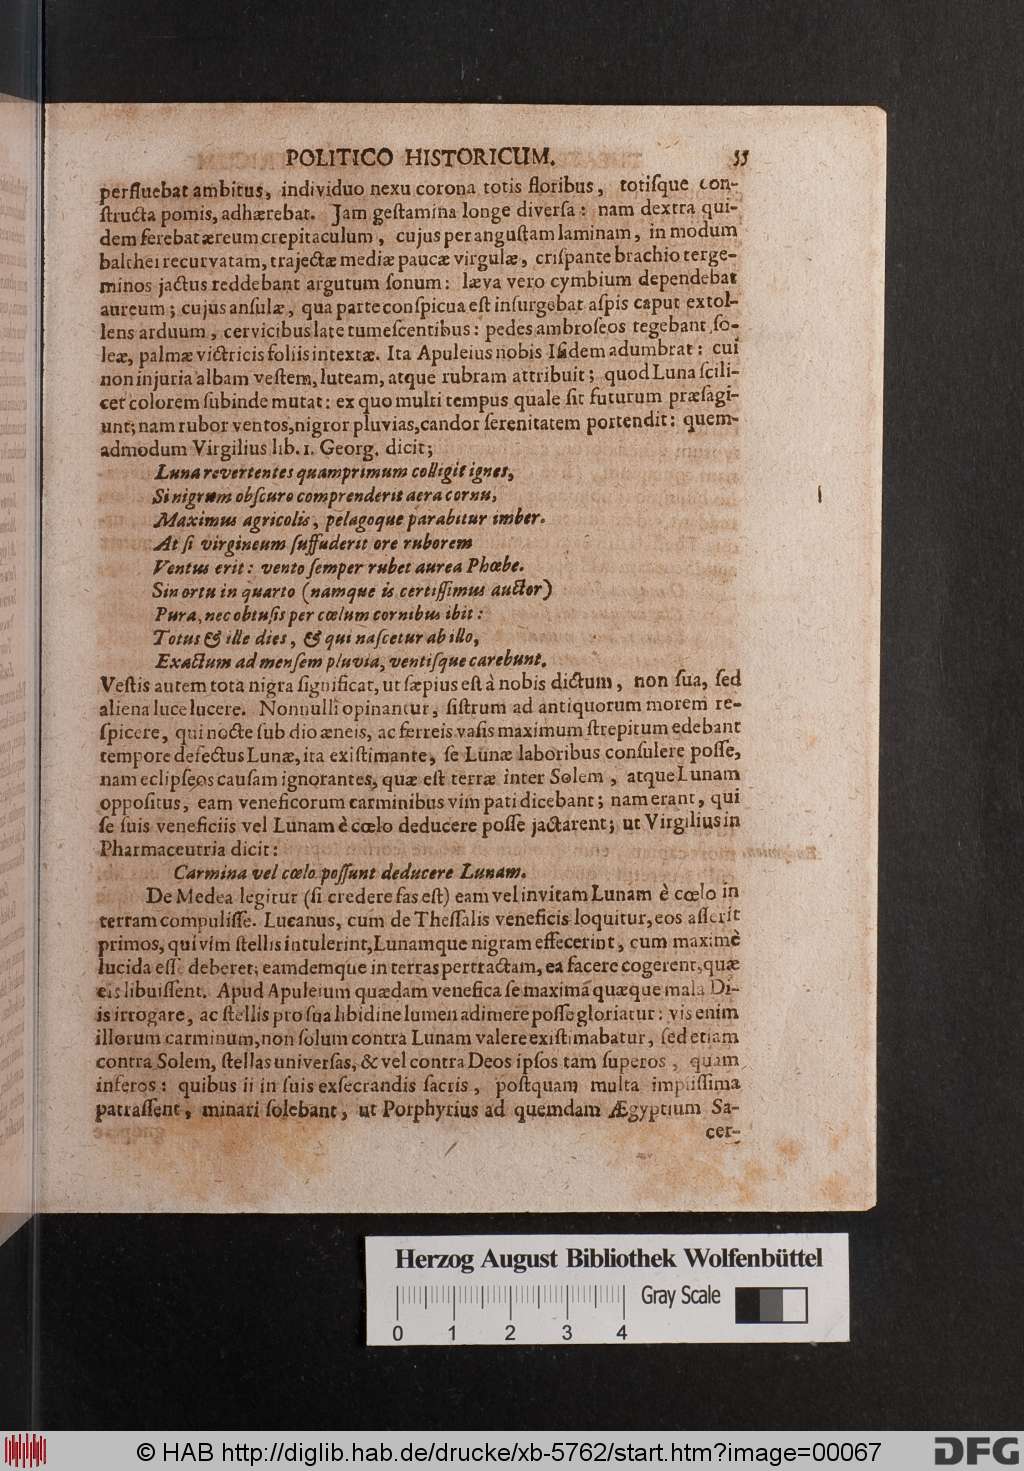 POLITICO HISTORICUM. 55
perfluebat ambitus, individuo nexu corona totis floribus, totiſque con-
ſtructa pomis, adhærebat. Jam geſtamina longe diverſa: nam dextra qui-
dem ferebat æreum crepitaculum, cujus per anguſtam laminam, in modum
balthei recurvatam, trajectæ mediæ paucæ virgulæ, criſpante brachio terge-
minos jactus reddebant argutum ſonum: læva vero cymbium dependebat
aureum; cujus anſulæ, qua parte conſpicua eſt inſurgebat aſpis caput extol-
lens arduum, cervicibus late tumeſcentibus: pedes ambroſeos tegebant ſo-
leæ, palmæ victricis foliis intextæ. Ita Apuleius nobis Iſidem adumbrat: cui
non injuria albam veſtem, luteam, atque rubram attribuit; quod Luna ſcili-
cet colorem ſubinde mutat: ex quo multi tempus quale ſit futurum præſagi-
unt; nam rubor ventos, nigror pluvias, candor ſerenitatem portendit: quem-
admodum Virgilius lib. 1. Georg. dicit;
Luna revertentes quamprimum colligit ignes,
Si nigrum obſcuro comprenderit aera cornu,
Maximus agricolis, pelagoque parabitur imber.
At ſi virgineum ſuffuderit ore ruborem
Ventus erit: vento ſemper rubet aurea Phœbe.
Sin ortu in quarto (namque is certiſſimus auctor)
Pura, nec obtuſis per cœlum cornibus ibit:
Totus & ille dies, & qui naſcetur ab illo,
Exactum ad menſem pluvia, ventiſque carebunt.
Veſtis autem tota nigra ſignificat, ut ſæpius eſt à nobis dictum, non ſua, ſed
aliena luce lucere. Nonnulli opinantur, ſiſtrum ad antiquorum morem re-
ſpicere, qui nocte ſub dio æneis, ac ferreis vaſis maximum ſtrepitum edebant
tempore defectus Lunæ, ita exiſtimante, ſe Lunæ laboribus conſulere poſſe,
nam eclipſeos cauſam ignorantes, quæ eſt terræ inter Solem, atque Lunam
oppoſitus, eam veneficorum carminibus vim pati dicebant; nam erant, qui
ſe ſuis veneficiis vel Lunam è cœlo deducere poſſe jactarent; ut Virgilius in
Pharmaceutria dicit:
Carmina vel cœlo poſſunt deducere Lunam.
De Medea legitur (ſi credere fas eſt) eam vel invitam Lunam è cœlo in
terram compuliſſe. Lucanus, cum de Theſſalis veneficis loquitur, eos aſſerit
primos, qui vim ſtellis intulerint, Lunamque nigram effecerint, cum maximè
lucida eſſe deberet; eamdemque in terras pertractam, ea facere cogerent, quæ
eis libuiſſent. Apud Apuleium quædam venefica ſe maximá quæque mala Di-
is irrogare, ac ſtellis pro ſua libidine lumen adimere poſſe gloriatur: vis enim
illorum carminum, non ſolum contra Lunam valere exiſtimabatur, ſed etiam
contra Solem, ſtellas univerſas, & vel contra Deos ipſos tam ſuperos, quam
inferos: quibus ii in ſuis exſecrandis ſacris, poſtquam multa impiiſſima
patraſſent, minari ſolebant, ut Porphyrius ad quemdam Ægyptium Sa-
cer-
Herzog August Bibliothek Wolfenbüttel
Gray Scale
0 1 2 3 4
© HAB http://diglib.hab.de/drucke/xb-5762/start.htm?image=00067
DFG